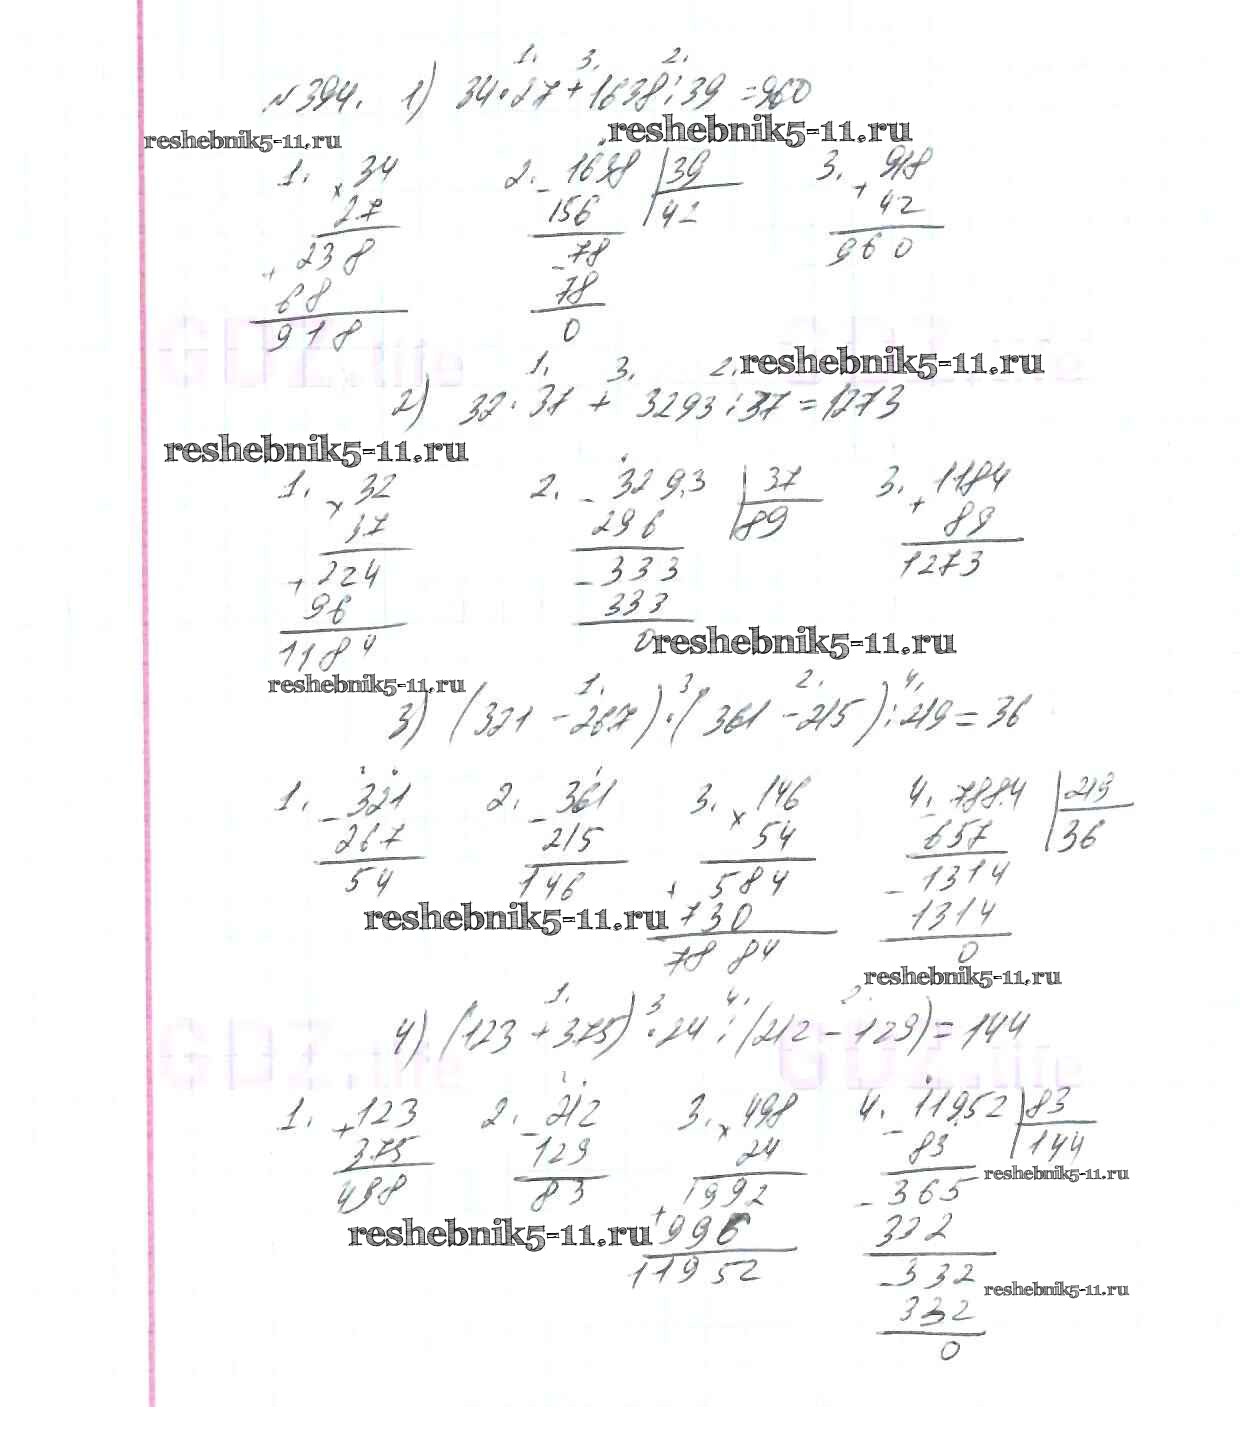 1. 3. 2.
№394. 1) 34·27+1638:39=960
reshebnik5-11.ru
reshebnik5-11.ru
1. × 34 2. - 1638 39 3. + 918
27 156 42 42
+ 238 - 78 960
68 78
918 0
reshebnik5-11.ru
1. 3. 2.
2) 32·37 + 3293:37=1273
reshebnik5-11.ru
1. × 32 2. - 3293 37 3. + 1184
37 296 89 89
+ 224 - 333 1273
96 333
1184 0
reshebnik5-11.ru
reshebnik5-11.ru
1. 3. 2. 4.
3) (321-267)·(361-215):219=36
1. - 321 2. - 361 3. × 146 4. - 7884 219
267 215 54 657 36
54 146 + 584 - 1314
reshebnik5-11.ru 730 1314
7884 0
reshebnik5-11.ru
1. 3 4. 2.
4) (123+375)·24:(212-129)=144
1. + 123 2. - 212 3. × 498 4. - 11952 83
375 129 24 83 144
498 83 + 1992 - 365
reshebnik5-11.ru
reshebnik5-11.ru + 996 332
11952 - 332
reshebnik5-11.ru
332
0